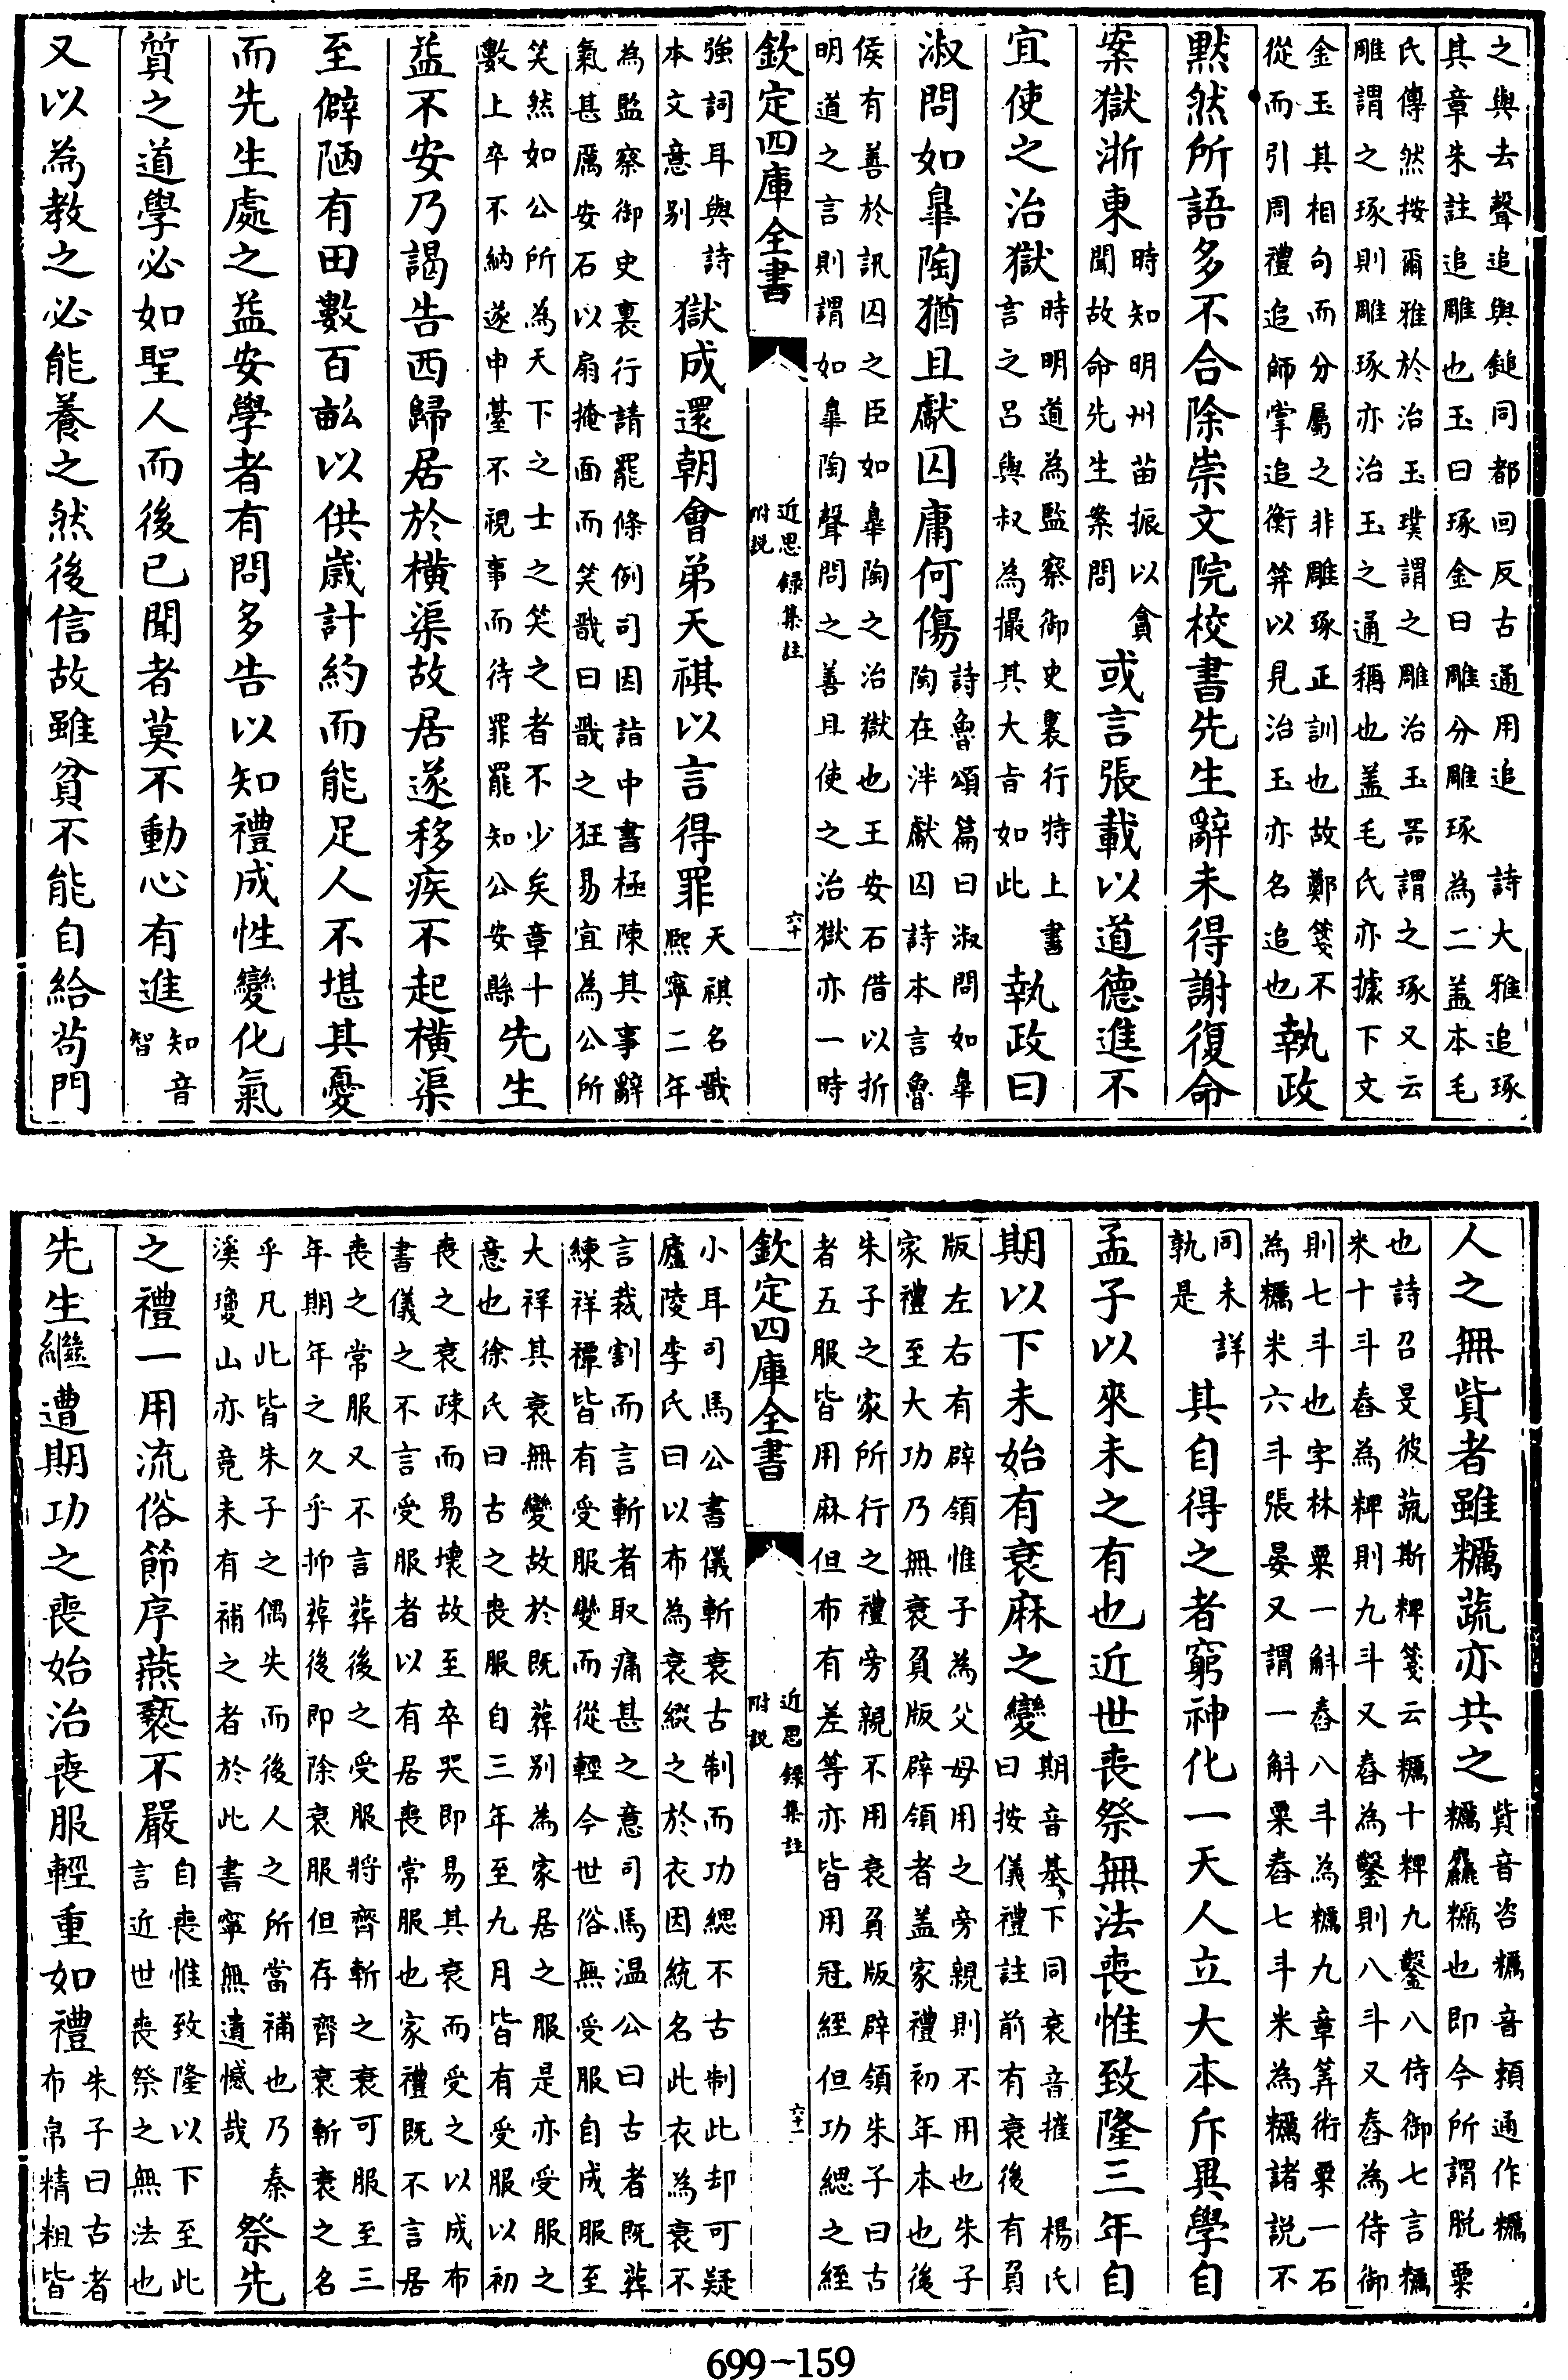 之與去聲追與鎚同都回反古通用追　詩大雅追琢
其章朱註追雕也玉曰琢金曰雕分雕琢為二蓋本毛
氏傳然按爾雅於治玉璞謂之雕治玉器謂之琢又云
雕謂之琢則雕琢亦治玉之通稱也蓋毛氏亦據下文
金玉其相句而分屬之非雕琢正訓也故鄭箋不
從而引周禮追師掌追衡笄以見治玉亦名追也
執政
默然所語多不合除崇文院校書先生辭未得謝復命
案獄浙東
時知明州苗振以貪
聞故命先生案問
或言張載以道德進不
宜使之治獄
時明道為監察御史裏行特上書
言之呂與叔為撮其大旨如此
執政曰
淑問如臯陶猶且獻囚庸何傷
詩魯頌篇曰淑問如臯
陶在泮獻囚詩本言魯
侯有善於訊囚之臣如臯陶之治獄也王安石借以折
明道之言則謂如臯陶聲問之善且使之治獄亦一時
欽定四庫全書
近思錄集註
附說
六十
強詞耳與詩
本文意別
獄成還朝會弟天祺以言得罪
天祺名戩
熙寧二年
為監察御史裏行請罷條例司因詣中書極陳其事辭
氣甚厲安石以扇掩面而笑戩曰戩之狂易宜為公所
笑然如公所為天下之士之笑之者不少矣章十
數上卒不納遂申臺不視事而待罪罷知公安縣
先生
益不安乃謁告西歸居於橫渠故居遂移疾不起橫渠
至僻陋有田數百畝以供歲計約而能足人不堪其憂
而先生處之益安學者有問多告以知禮成性變化氣
質之道學必如聖人而後已聞者莫不動心有進
知音
智
又以為教之必能養之然後信故雖貧不能自給苟門
人之無貲者雖糲蔬亦共之
貲音咨糲音賴通作糲
糲麤糲也即今所謂脫粟
也詩召旻彼蔬斯粺箋云糲十粺九鑿八侍御七言糲
米十斗舂為粺則九斗又舂為鑿則八斗又舂為侍御
則七斗也字林粟一斛舂八斗為糲九章筭術粟一石
為糲米六斗張晏又謂一斛粟舂七斗米為糲諸說不
同未詳
孰是
其自得之者窮神化一天人立大本斥異學自
孟子以來未之有也近世喪祭無法喪惟致隆三年自
期以下未始有衰麻之變
期音基下同衰音摧　楊氏
曰按儀禮註前有衰後有負
版左右有辟領惟子為父母用之旁親則不用也朱子
家禮至大功乃無衰負版辟領者蓋家禮初年本也後
朱子之家所行之禮旁親不用衰負版辟領朱子曰古
者五服皆用麻但布有差等亦皆用冠絰但功緦之絰
欽定四庫全書
近思錄集註
附說
六十一
小耳司馬公書儀斬衰古制而功緦不古制此却可疑
廬陵李氏曰以布為衰綴之於衣因統名此衣為衰不
言裁割而言斬者取痛甚之意司馬温公曰古者既葬
練祥禫皆有受服變而從輕今世俗無受服自成服至
大祥其衰無變故於既葬別為家居之服是亦受服之
意也徐氏曰古之喪服自三年至九月皆有受服以初
喪之衰疎而易壞故至卒哭即易其衰而受之以成布
書儀之不言受服者以有居喪常服也家禮既不言居
喪之常服又不言葬後之受服將齊斬之衰可服至三
年期年之久乎抑葬後即除衰服但存齊衰斬衰之名
乎凡此皆朱子之偶失而後人之所當補也乃秦
溪瓊山亦竟未有補之者於此書寧無遺憾哉
祭先
之禮一用流俗節序燕䙝不嚴
自喪惟致隆以下至此
言近世喪祭之無法也
先生繼遭期功之喪始治喪服輕重如禮
朱子曰古者
布帛精粗皆
699-159